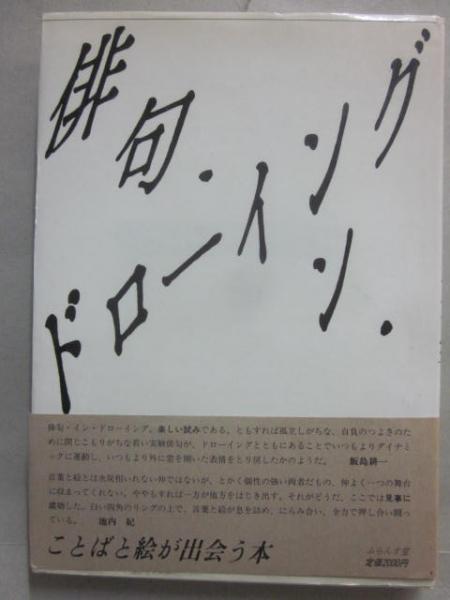 俳句・イン・
ドローイング
俳句・イン・ドローイング。楽しい試みである。ともすれば孤立しがちな、自負のつよさのた
めに閉じこもりがちな若い実験俳句が、ドローイングとともにあることでいつもよりダイナミ
ックに運動し、いつもより外に窓を開いた表情をとり戻したかのようだ。　飯島耕一
言葉と絵とは水炭相いれない仲ではないが、とかく個性の強い両者だもの、仲よく一つの舞台
に収まってくれない。ややもすれば一方が他方をはじき出す。それがどうだ、ここでは見事に
成功した。白い四角のリングの上で、言葉と絵が息を詰め、にらみ合い、全力で押し合い闘っ
ている。　池内　紀
ことばと絵が出会う本
ふらんす堂
定価2000円